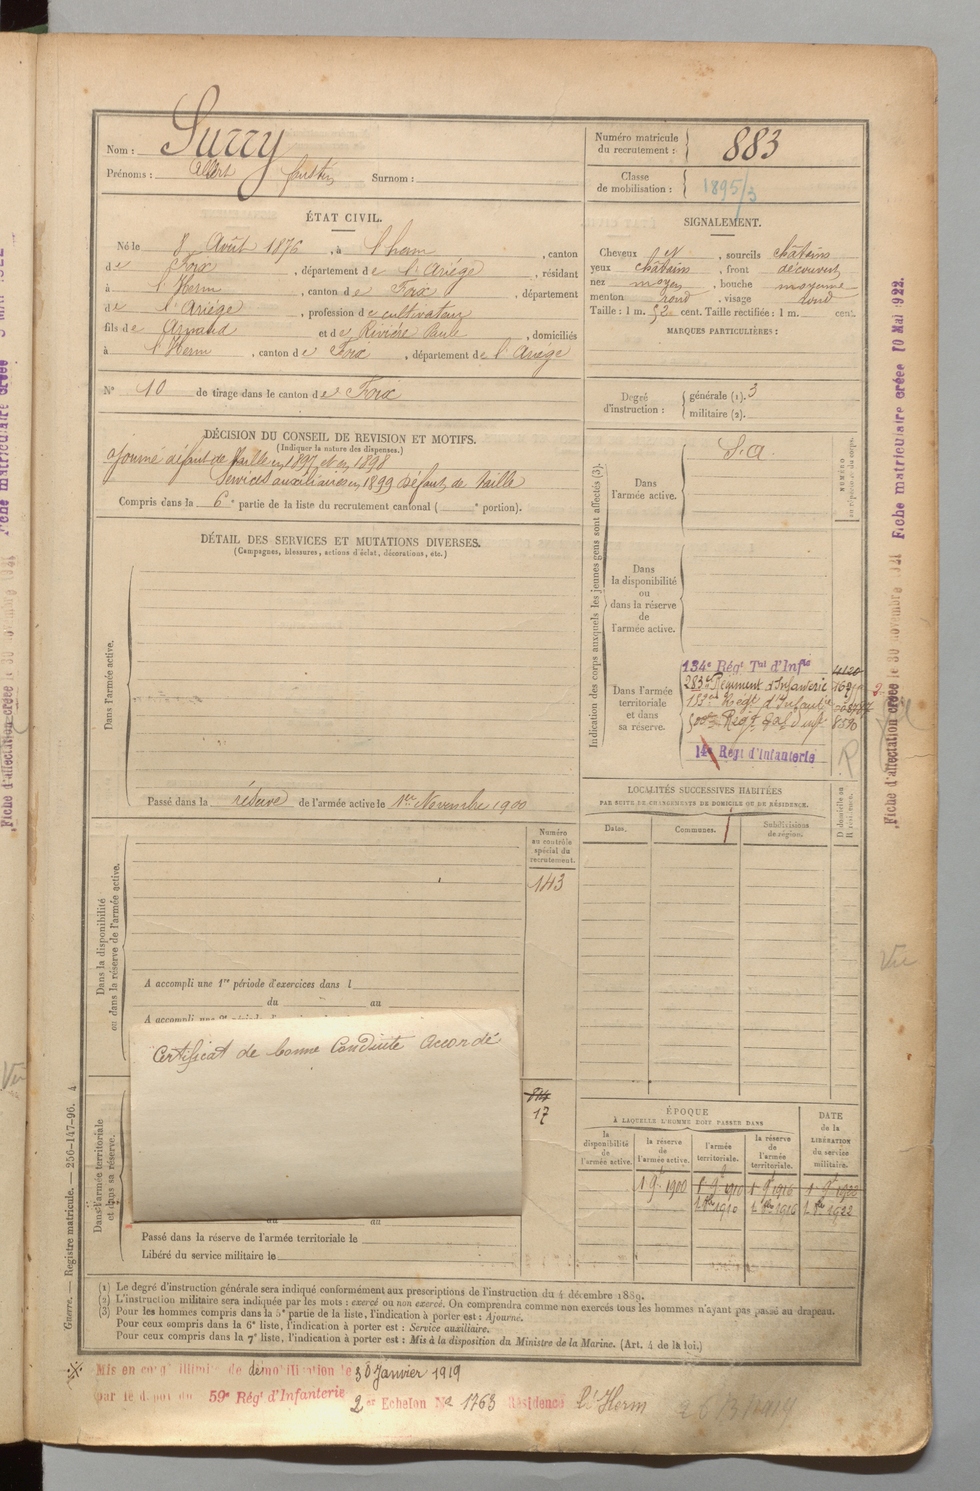 Nom : Surry
Prénoms : Albert Justin Surnom :
Numéro matricule du recrutement : 883
Classe de mobilisation : 1895/3
ÉTAT CIVIL.
Né le 8 Août 1876, à l'herm, canton
de Foix, département de l'Ariége, résidant
à l'Herm, canton de Foix, département
de l'Ariége, profession de cultivateur
fils de Armand et de Rivière Paule, domiciliés
à l'Herm, canton de Foix, département de l'Ariége
N° 10 de tirage dans le canton de Foix
SIGNALEMENT.
Cheveux N, sourcils châtains
yeux châtains, front découvert
nez moyen, bouche moyenne
menton rond, visage rond
Taille : 1 m. 52 cent. Taille rectifiée : 1 m. cent.
MARQUES PARTICULIÈRES :
Degré d'instruction : générale (1). 3
militaire (2).
DÉCISION DU CONSEIL DE REVISION ET MOTIFS.
(Indiquer la nature des dispenses.)
ajourné défaut de taille en 1897 et en 1898
Services auxiliaires en 1899 défaut de taille
Compris dans la 6e partie de la liste du recrutement cantonal ( e portion).
DÉTAIL DES SERVICES ET MUTATIONS DIVERSES.
(Campagnes, blessures, actions d'éclat, décorations, etc.)
Dans l'armée active.
Passé dans la réserve de l'armée active le 1er Novembre 1900
Indication des corps auxquels les jeunes gens sont affectés (3).
NUMÉRO
au répertoire du corps.
Dans l'armée active.
S.A.
Dans la disponibilité ou dans la réserve de l'armée active.
Dans l'armée territoriale et dans sa réserve.
134e Régt Tal d'Infie 4120
283e Régiment d'Infanterie
8590
14e Regt d'Infanterie
R
LOCALITÉS SUCCESSIVES HABITÉES
PAR SUITE DE CHANGEMENTS DE DOMICILE OU DE RÉSIDENCE.
D domicile ou R résidence.
Dates. Communes. Subdivisions de région.
Numéro au contrôle spécial du recrutement.
143
Dans la disponibilité ou dans la réserve de l'armée active.
A accompli une 1re période d'exercices dans l
du au
A accompli une 2e période
Certificat de bonne Conduite Accordé
814
17
Dans l'armée territoriale et dans sa réserve.
du au
Passé dans la réserve de l'armée territoriale le
Libéré du service militaire le
ÉPOQUE
À LAQUELLE L'HOMME DOIT PASSER DANS
la disponibilité de l'armée active.
la réserve de l'armée active.
l'armée territoriale.
la réserve de l'armée territoriale.
DATE de la LIBÉRATION du service militaire.
1 9bre 1900 1 9bre 1910 1 9bre 1916 1 9bre 1922
1. 8bre 1910 1. 8bre 1916 1. 8bre 1922
(1) Le degré d'instruction générale sera indiqué conformément aux prescriptions de l'instruction du 4 décembre 1889.
(2) L'instruction militaire sera indiquée par les mots : exercé ou non exercé. On comprendra comme non exercés tous les hommes n'ayant pas passé au drapeau.
(3) Pour les hommes compris dans la 5e partie de la liste, l'indication à porter est : Ajourné.
Pour ceux compris dans la 6e liste, l'indication à porter est : Service auxiliaire.
Pour ceux compris dans la 7e liste, l'indication à porter est : Mis à la disposition du Ministre de la Marine. (Art. 4 de la loi.)
Mis en congé illimité de démobilisation le 30 Janvier 1919
par le dépôt du 59e Régt d'Infanterie 2er Echelon No 1763 Résidence l'Herm 26/3/1919
Guerre. — Registre matricule. — 256-147-96. 4
Fiche d'affectation créée le 30 novembre 1921 Fiche matriculaire créée 10 Mai 1922.
Vu